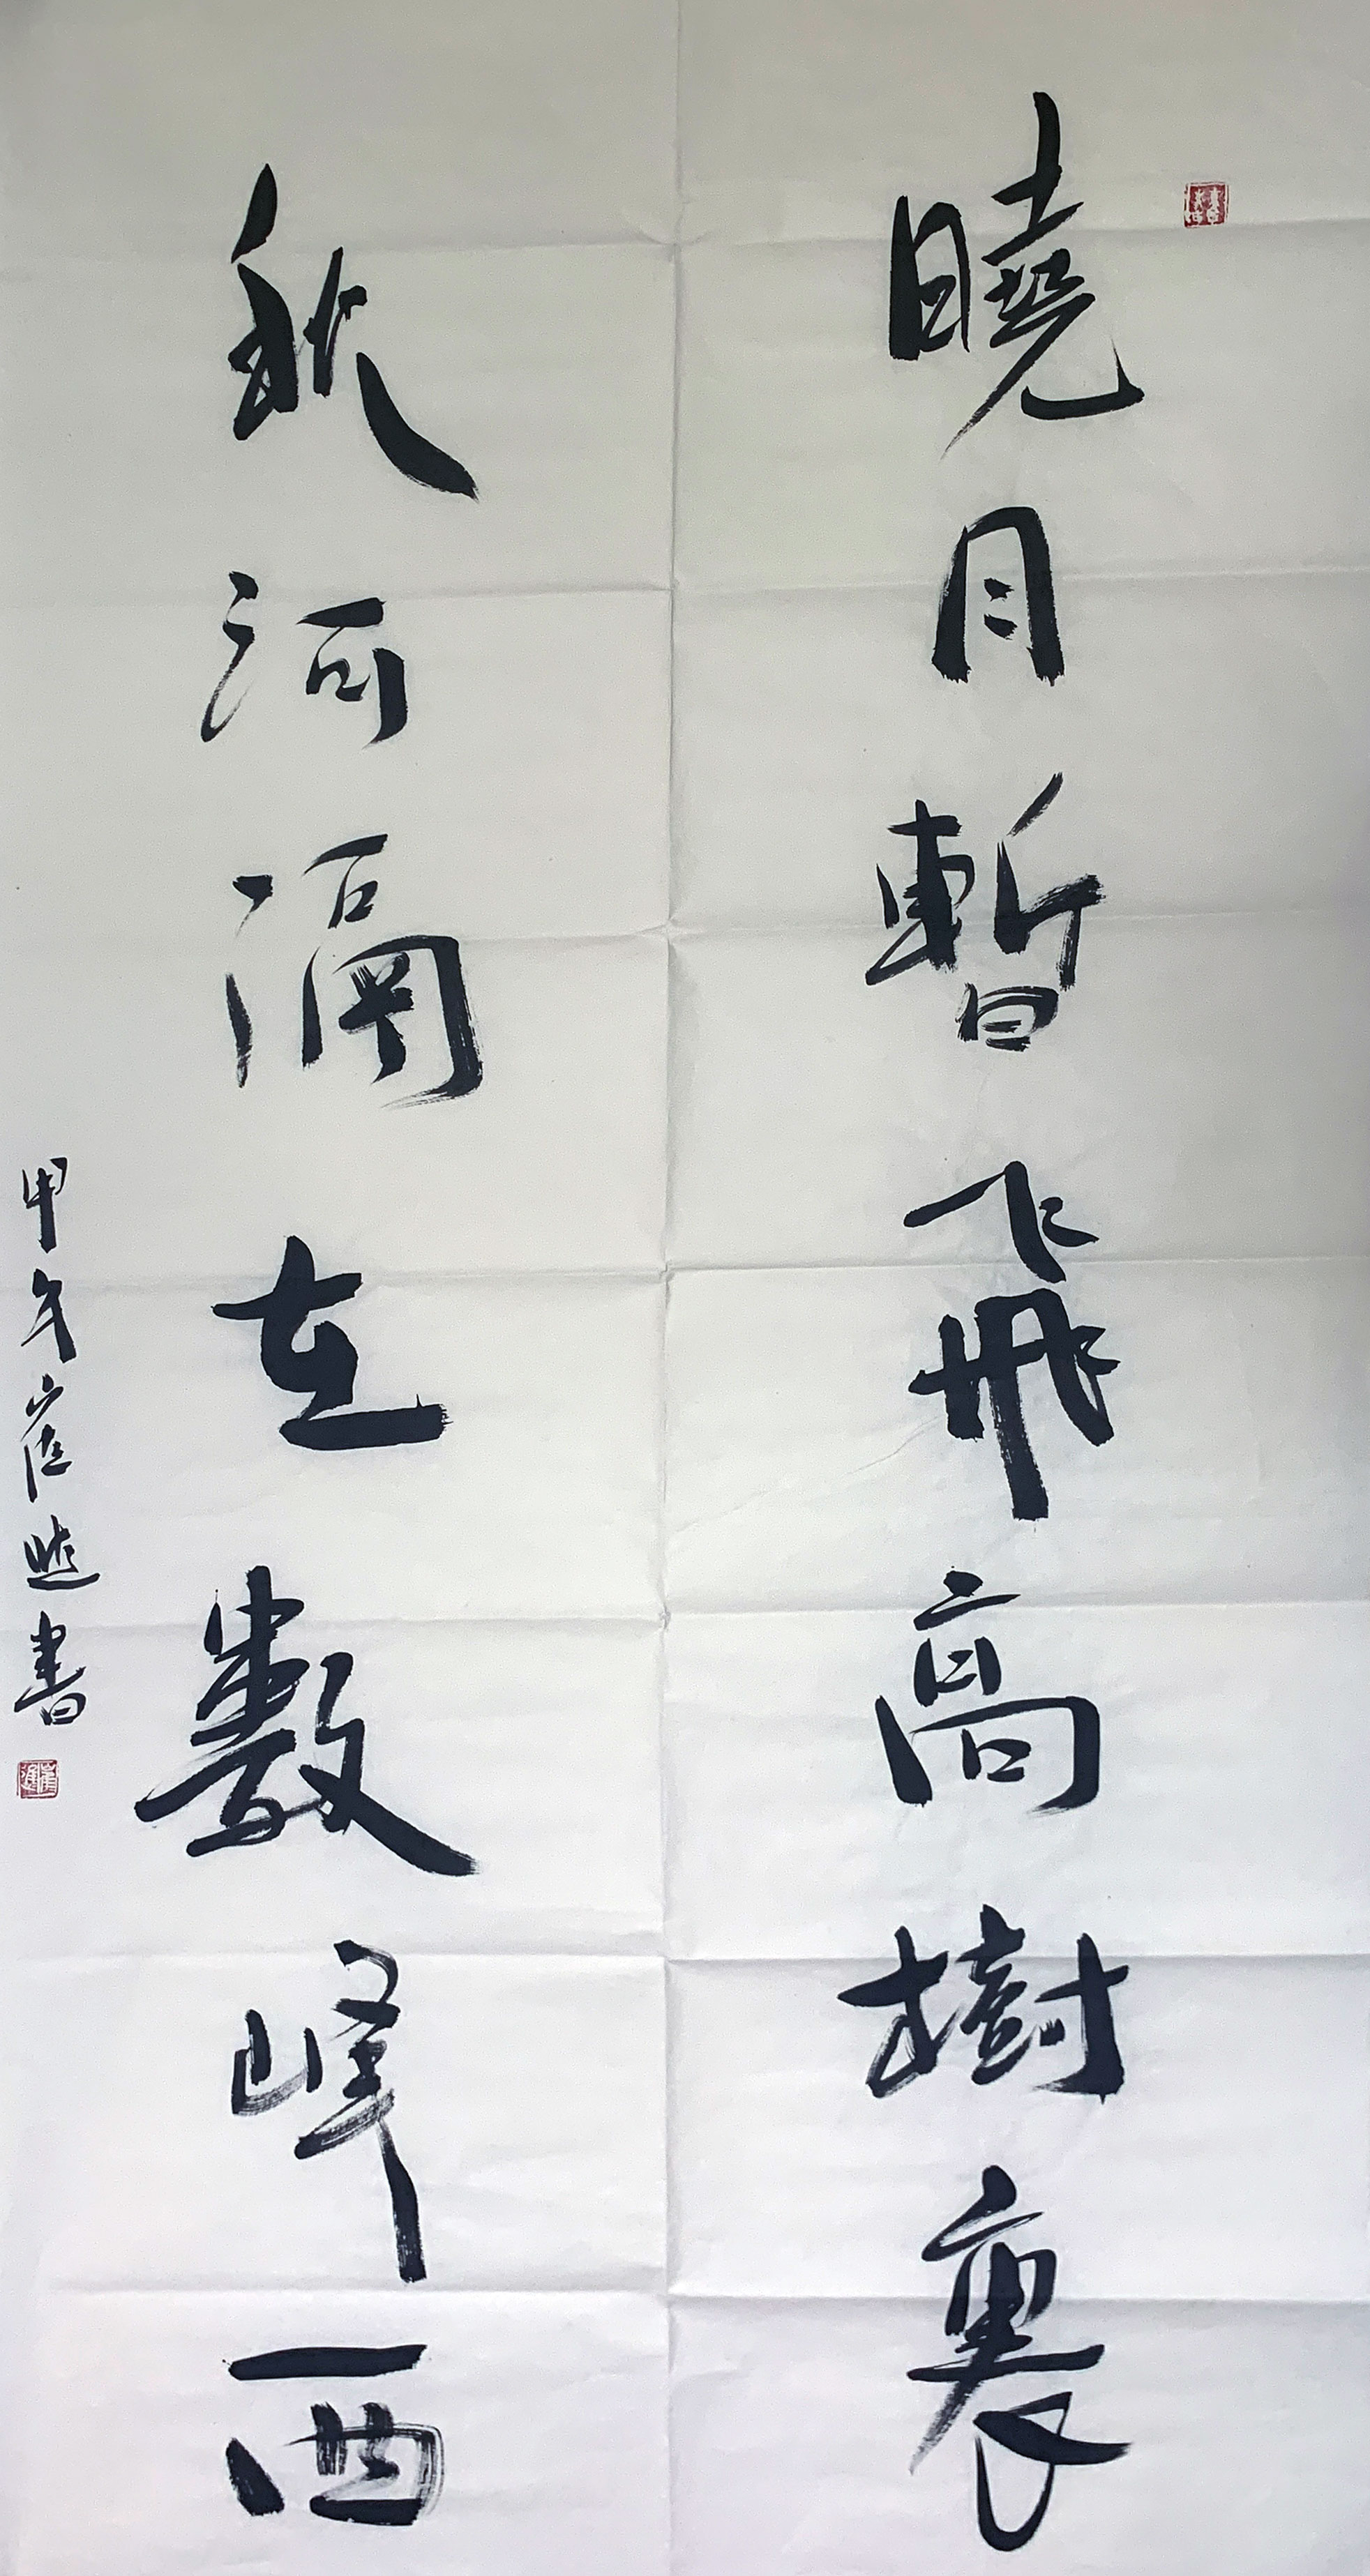 曉月暫飛高樹裏
秋河隔在數峰西
甲午 崔進書